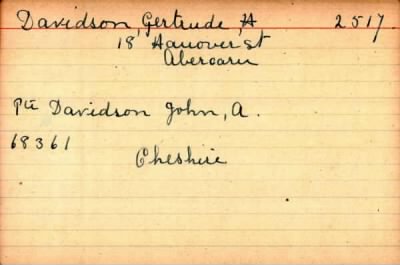 Davidson, Gertrude, H 2517
18 Hanover St
Abercarn
Pte Davidson John, A.
68361
Cheshire